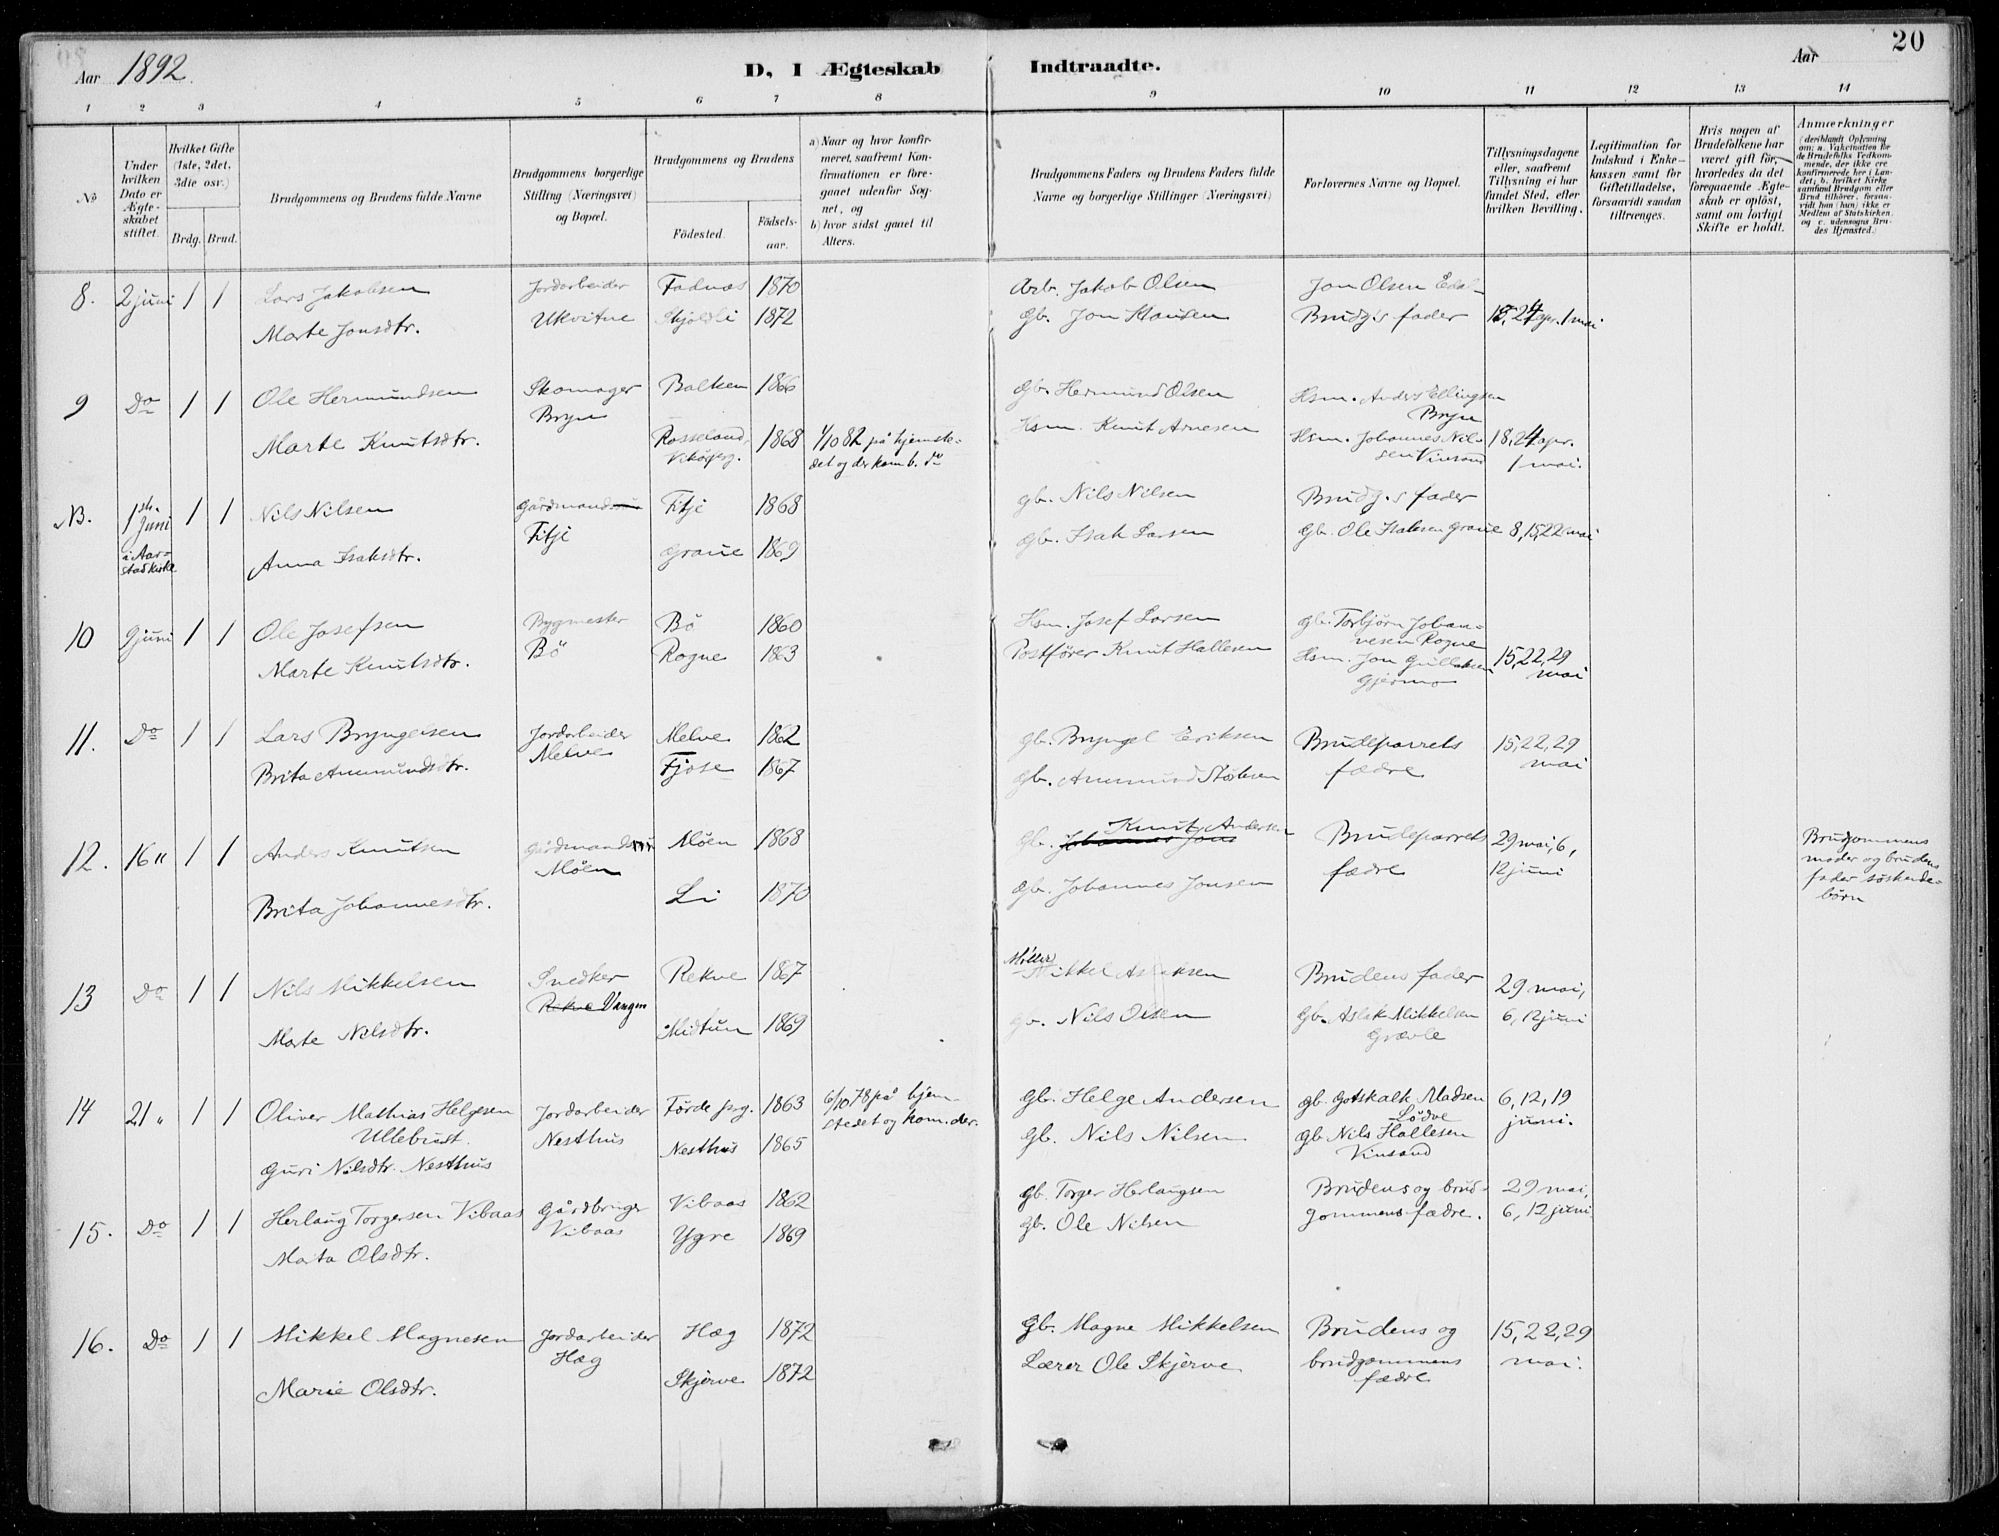 Aar 1892.
D, I Ægteskab Indtraadte.
Aar
20
1 2 3 4 5 6 7 8 9 10 11 12 13 14
No
Under hvilken Dato er Ægteskabet stiftet.
Hvilket Gifte (1ste, 2det, 3die osv.)
Brdg. Brud.
Brudgommens og Brudens fulde Navne
Brudgommens borgerlige Stilling (Næringsvei) og Bopæl.
Brudgommens og Brudens
Födested. Födselsaar.
a) Naar og hvor konfirmeret, saafremt Konfirmationen er foregaaet udenfor Sognet, og
b) hvor sidst gaaet til Alters.
Brudgommens Faders og Brudens Faders fulde Navne og borgerlige Stillinger (Næringsvei)
Forlovernes Navne og Bopæl.
Tillysningsdagene eller, saafremt Tillysning ei har fundet Sted, efter hvilken Bevilling.
Legitimation for Indskud i Enkekassen samt for Giftetilladelse, forsaavidt saadan tiltrænges.
Hvis nogen af Brudefolkene har været gift för, hvorledes da det foregaaende Ægteskab er oplöst, samt om lovligt Skifte er holdt.
Anmærkninger
(deriblandt Oplysning om: a. Vakcination for de Brudefolks Vedkommende, der ikke ere konfirmerede her i Landet; b. hvilket Kirkesamfund Brudgom eller Brud tilhörer, forsaavidt han (hun) ikke er Medlem af Statskirken; og c. udensogns Brudes Hjemsted.)
8. 2 juni 1 1 Lars Jakobsen Jordarbeider Fadnæs 1870 Arb. Jakob Olsen Jon Olsen
Marte Jonsdtr. Ukvitne Skjoldli 1872 Gb. Jon Brudg.s fader 18, 24 apr. 1 mai
9 Do 1 1 Ole Hermundsen Skomager Balken 1866 Gb. Hermund Olsen Hsm. Anders Ellingsen
Bryn Bryn
Marte Knutsdtr. Rosseland, 1868 1/10 82 på hjemste- Hsm. Knut Arnesen Hsm. Johannes Nil- 18, 24 apr.
Vikøyprg. det og der kom b. do sen Vinsand 1 mai.
NB. 1ste Juni 1 1 Nils Nilsen Gårdmand Fitje 1868 Gb. Nils Nilsen Brudg.s fader
i Aar- Fitji
stad kirke Anna Isaksdtr. Graue 1869 Gb. Isak Larsen Gb. Ole Isaksen Graue 8, 15, 22 mai
10 9 juni 1 1 Ole Josefsen Bygmester Bö 1860 Hsm. Josef Larsen Gb. Torbjörn Johan-
nesen Rogne
Marte Knutsdtr. Bö Rogne 1863 Postförer Knut Hallesen Hsm. Jon Gulleksen 15, 22, 29
Gjerme mai
11. Do 1 1 Lars Bryngelsen Jordarbeider Melve 1862 Gb. Bryngel Eriksen Brudeparrets 15, 22, 29
Brita Ammundsdtr. Melve Fjose 1867 Gb. Ammund fædre mai
12. 16 " 1 1 Anders Knutsen Gårdmand Møen 1868 Gb. Johannes Jons Knut Andersen Brudeparrets 29 mai, 6, Brudgommens
Møen moder og brudens
Brita Johannesdtr. Li 1870 Gb. Johannes Jonsen fædre 12 juni fader söskende-
börn
13 Do 1 1 Nils Mikkelsen Snedker Rekve 1867 Möller Mikkel Aslaksen Brudens fader 29 mai,
Rekve Vangen
Marte Nilsdtr. Midtun 1869 Gb. Nils Olsen Gb. Aslak Mikkelsen 6, 12 juni
Grævle
14 21 " 1 1 Oliver Mathias Helgesen Jordarbeider Förde prg. 1863 6/10 78 på hjem- Gb. Helge Andersen Gb. Gotskalk Madsen 6, 12, 19
Ullebust. Nesthus stedet og kom. der. Lödve juni.
Guri Nilsdtr. Nesthus Nesthus 1865 Gb. Nils Nilsen Gb Nils Hallesen
Vinsand
15. Do 1 1 Herlaug Torgersen Vibaas Gårdbruger Vibaas 1862 Gb. Torger Herlaugsen Brudens og brud- 29 mai,
Vibaas
Marta Olsdtr. Ygre 1869 Gb. Ole Nilsen gommens fædre. 6, 12 juni
16. Do 1 1 Mikkel Magnesen Jordarbeider Hæg 1872 Gb. Magne Mikkelsen Brudens og 15, 22, 29
Hæg brudgommens mai.
Marie Olsdtr. Skjerve 1872 Lærer Ole Skjerve fædre